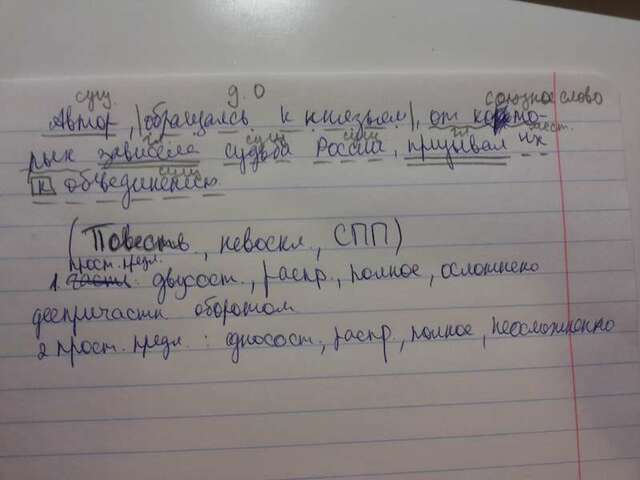 сущ. д.О союзное слово
Автор, |обращаясь к князьям|, от кото-
гл. сущ. сущ. гл. мест.
рых зависела судьба России, призывал их
сущ.
к объединению.
(Повеств., невоскл., СПП)
прост. предл.
1. двусост., распр., полное, осложнено
деепричастн оборотом
2 прост. предл. : односост, распр, полное, неосложненно